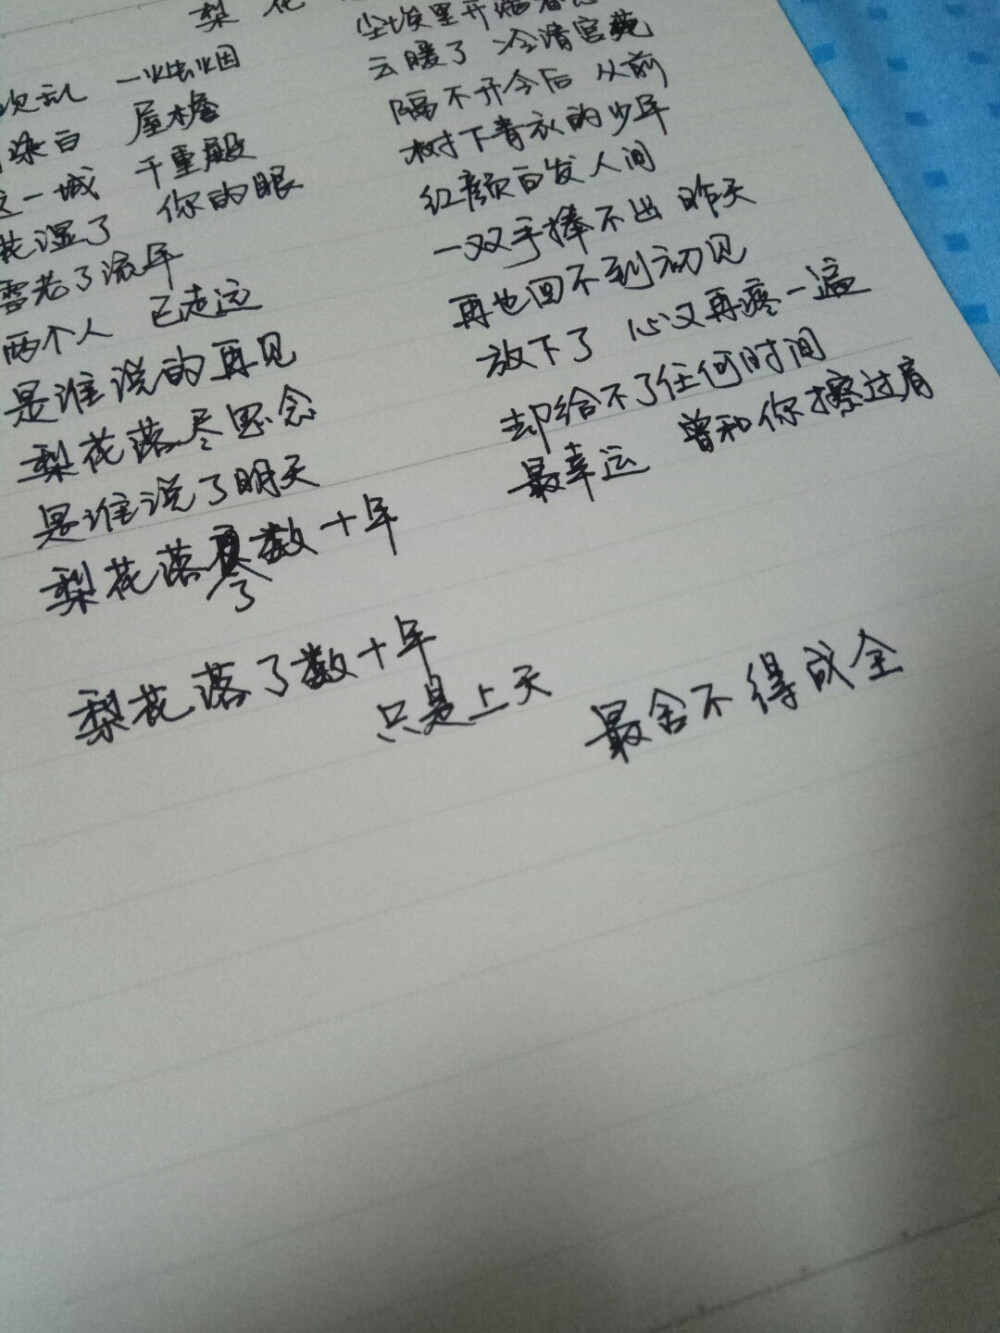 梨花
吹乱 一丝烟
染白 屋檐
这一城 千重殿
花湿了 你的眼
雪老了流年
两个人 已走远
是谁说的再见
梨花落尽思念
是谁说了明天
梨花落数十年
了
尘埃里开
云暖了 冷清宫苑
隔不开今后 从前
树下青衣的少年
红颜白发人间
一双手捧不出 昨天
再也回不到初见
放下了 心又再疼一遍
却给不了任何时间
最幸运 曾和你擦过肩
梨花落了数十年
只是上天 最舍不得成全